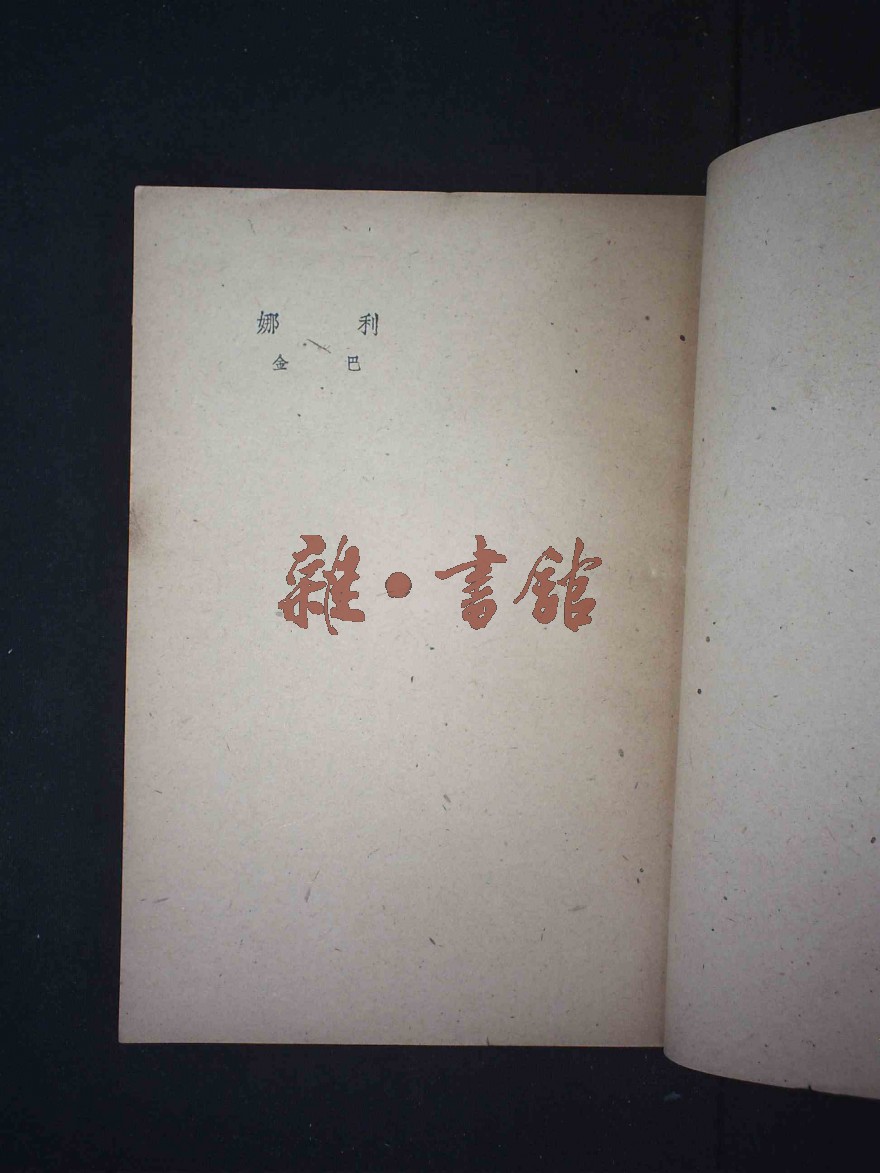 利娜
巴金
雜·書館